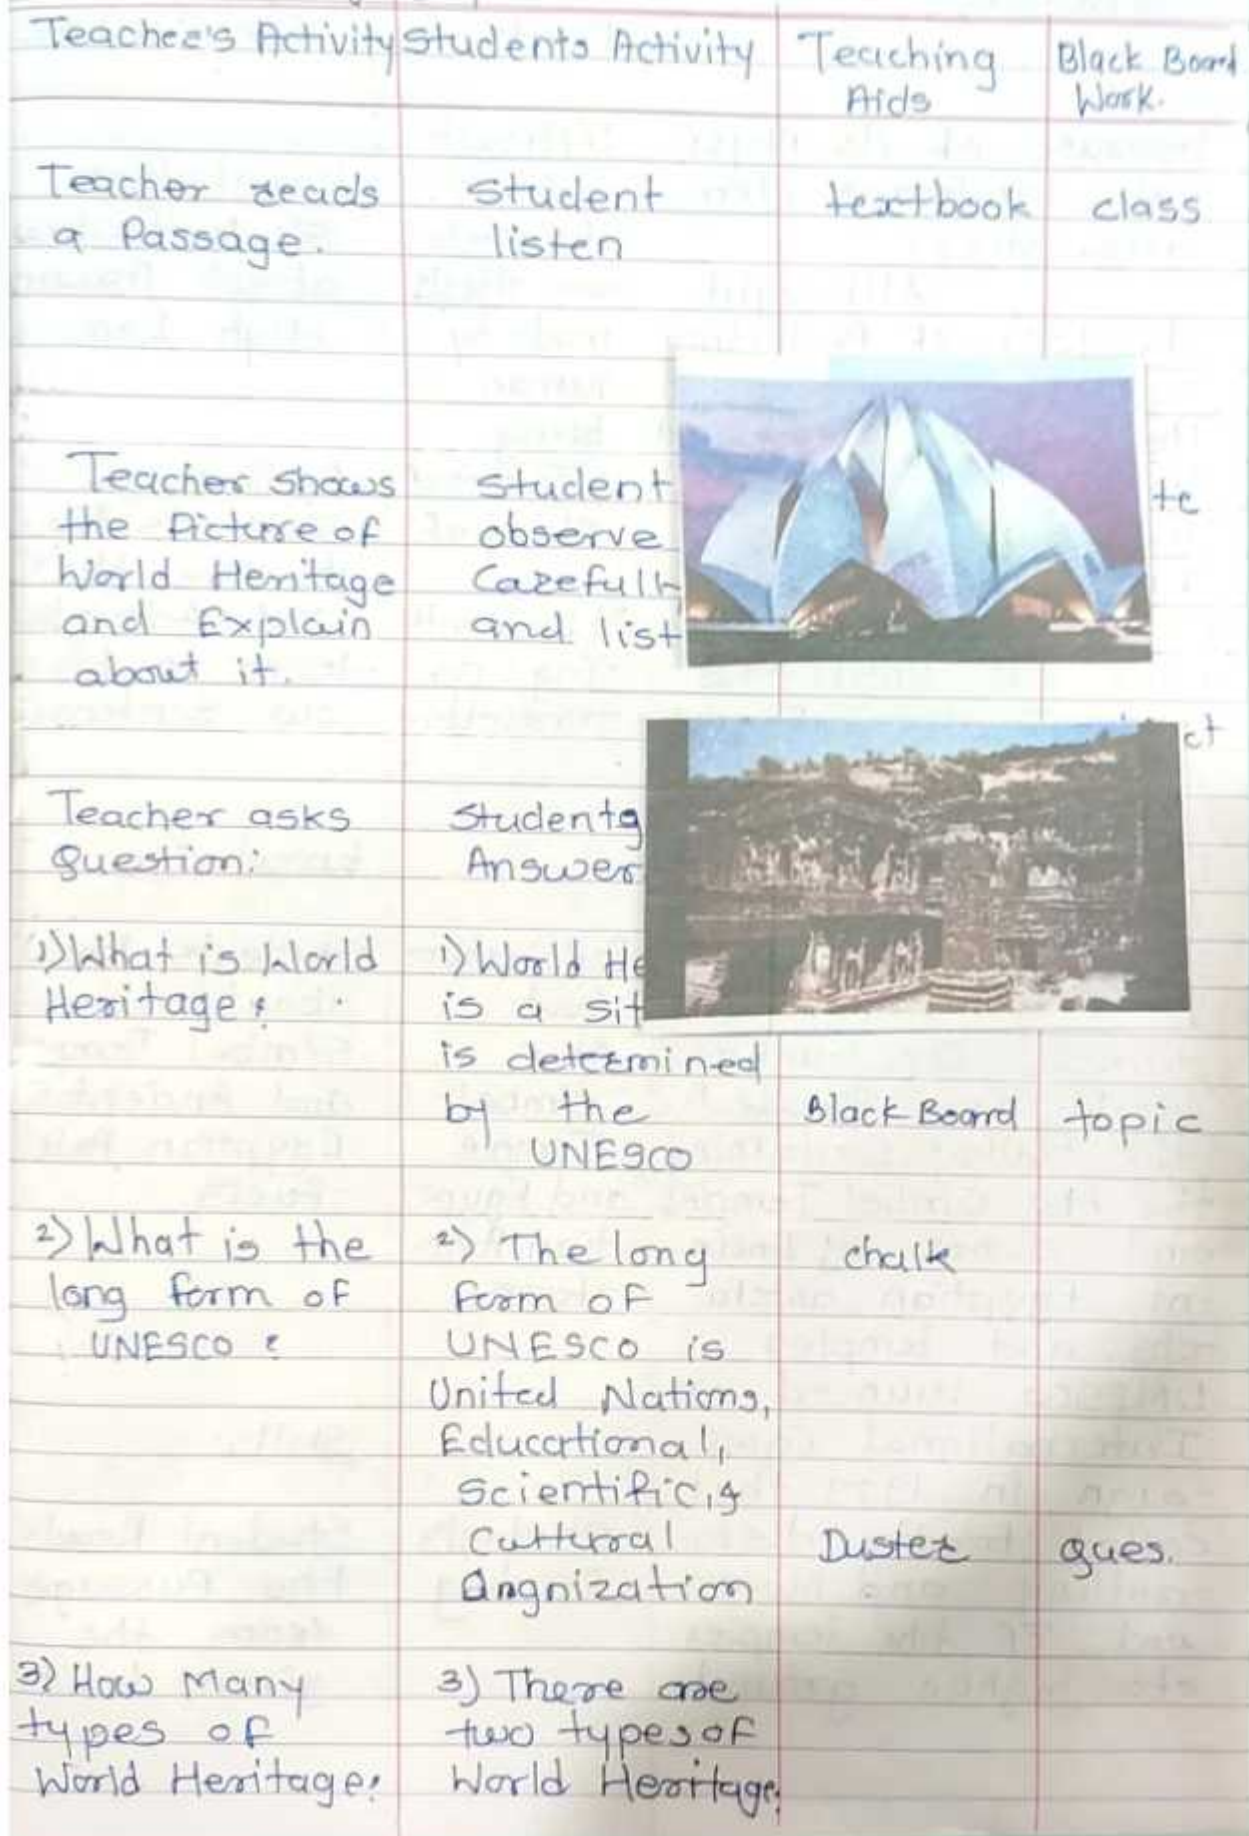 Teacher's Activity Students Activity Teaching Aids Black Board Work.
Teacher reads
a Passage.
Student
listen
textbook
class
Teacher shows
the Picture of
World Heritage
and Explain
about it.
Student
observe
Carefull
and list
te
ct
Teacher asks
Question:
Students
Answer
1) What is World
Heritage?
1) World He
is a sit
is determined
by the
UNESCO
Black Board
topic
2) What is the
long form of
UNESCO ?
2) The long
form of
UNESCO is
United Nations,
Educational,
Scientific, &
Cultural
Orgnization
chalk
Duster
Ques.
3) How Many
types of
World Heritage?
3) There are
two types of
World Heritage.